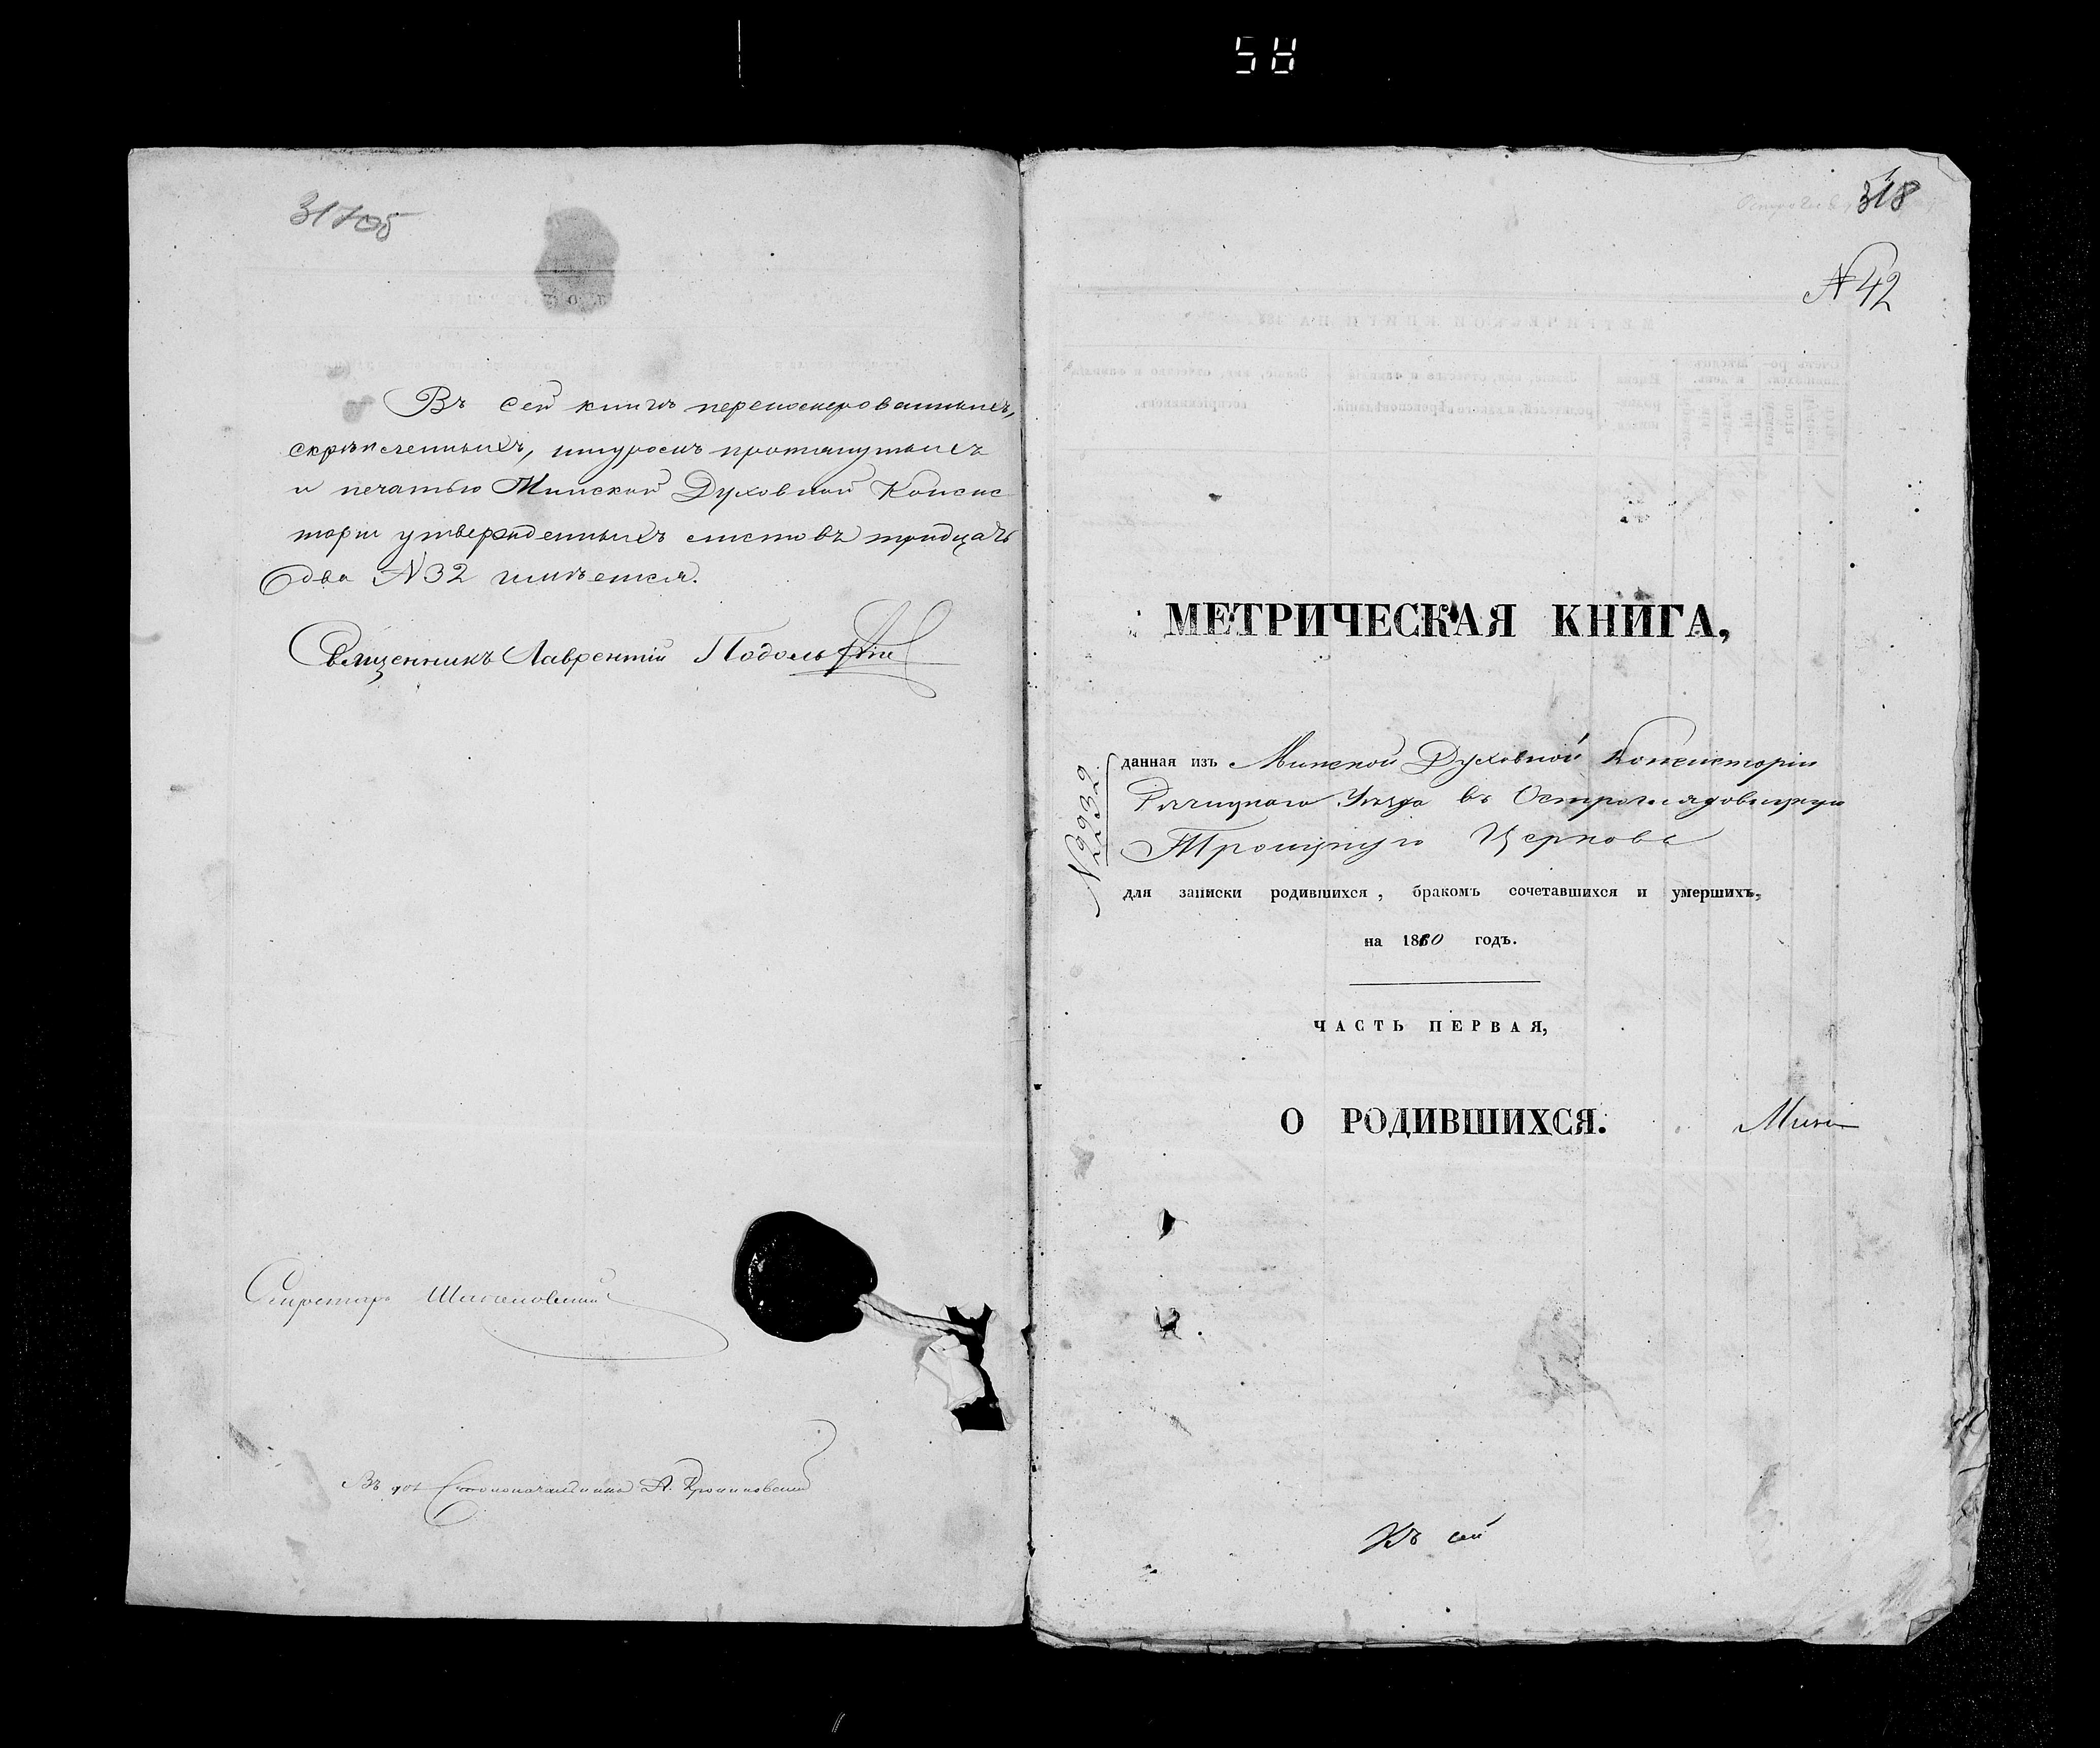 58
317об
Въ сей книгѣ перенумерованныхъ,
скрѣпленныхъ, шнуромъ протянутыхъ
и печатью Минской Духовной Консис
торіи утвержденныхъ листовъ тридцать
два N 32 имѣется.
Священникъ Лаврентій Подольскій
Секретарь
Въ Столоначальника А.
318
N 42
МЕТРИЧЕСКАЯ КНИГА,
N 9932
данная изъ Минской Духовной Консисторіи
Рѣчицкаго Уѣзда въ Остроглядовицкую
Троицкую Церковь
для записки родившихся, бракомъ сочетавшихся и умершихъ,
на 1860 годъ.
ЧАСТЬ ПЕРВАЯ,
О РОДИВШИХСЯ.
Къ сей